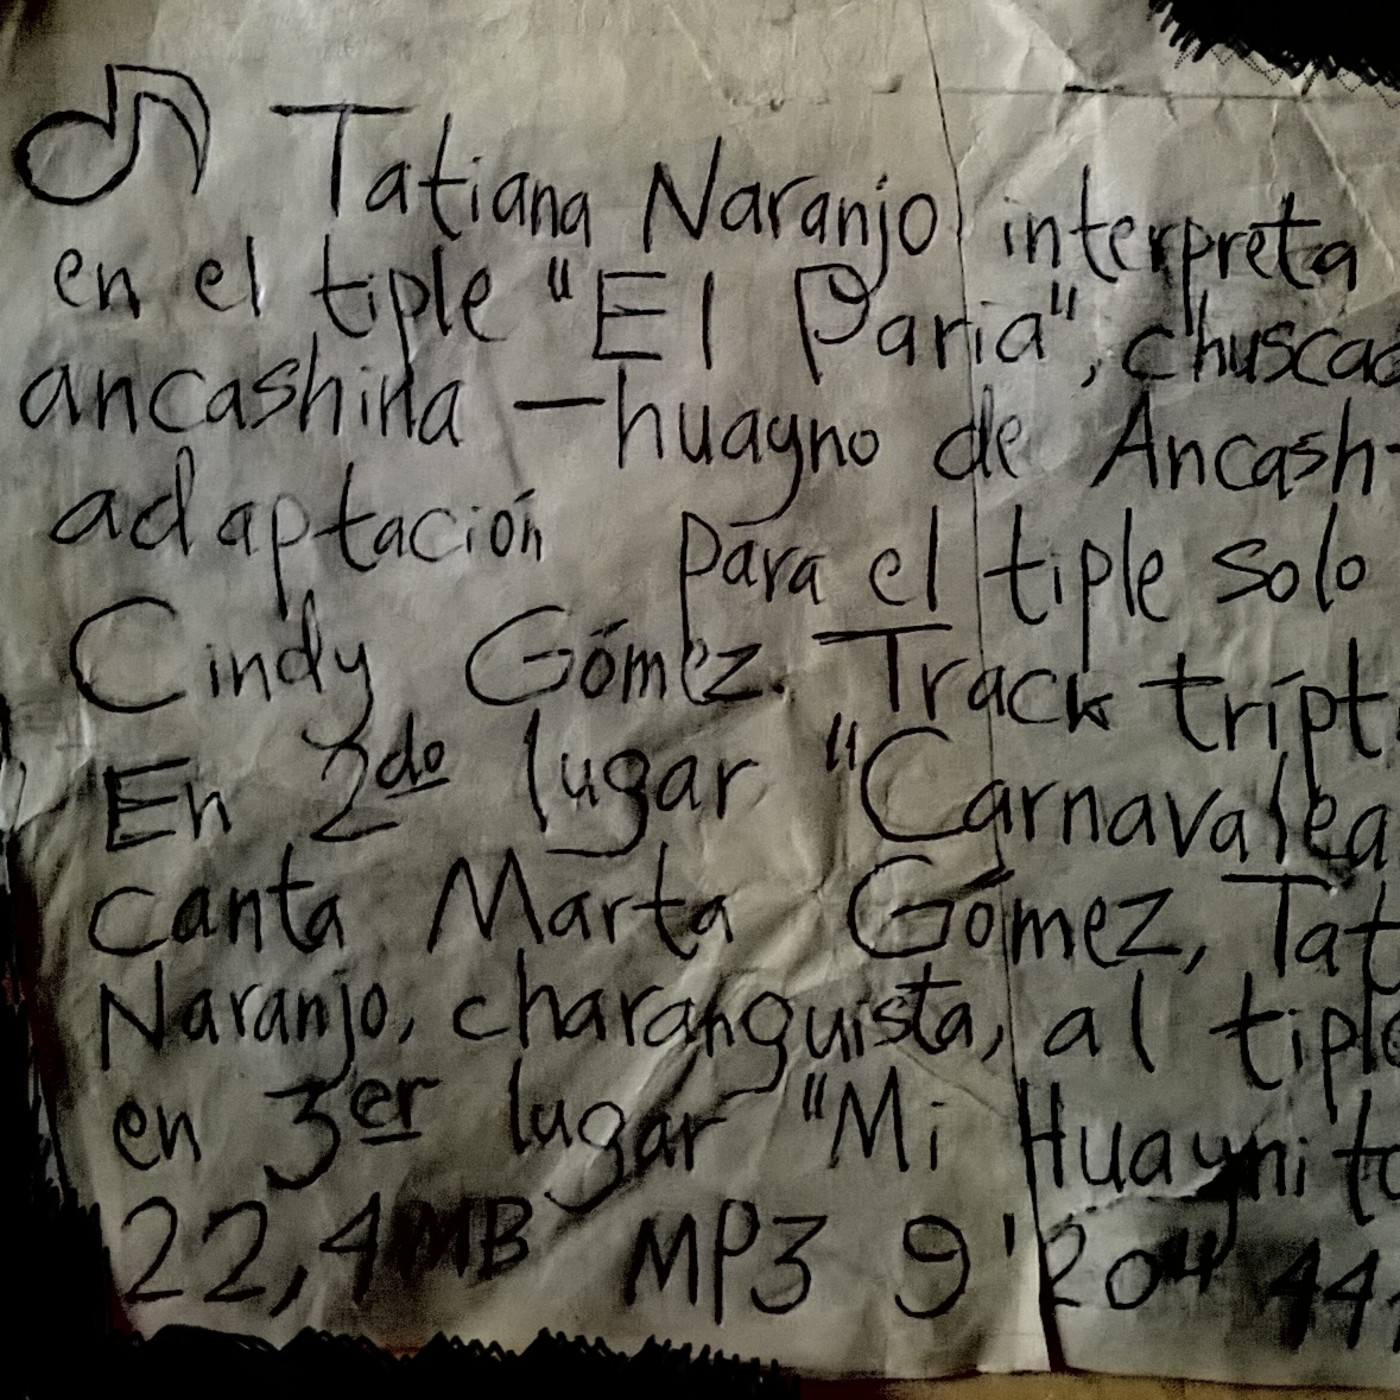 Tatiana Naranjo interpreta
en el tiple "El Paria", chuscad
ancashina — huayno de Ancash-
adaptación para el tiple solo
Cindy Gómez. Track trípt
En 2do lugar "Carnavalea
Canta Marta Gómez, Tat
Naranjo, charanguista, al tiple
en 3er lugar "Mi Huaynito
22,4MB MP3 9'20" 44,